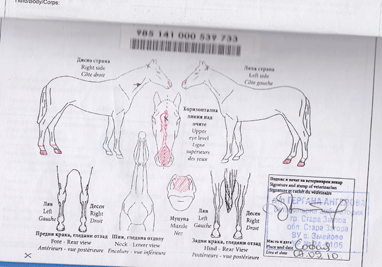 985 141 000 539 733
Дясна страна
Right side
Côté droit
Лява страна
Left side
Côté gauche
Хоризонтална
линия над
очите
Upper
eye level
Ligne
supérieure
des yeux
Ляв
Left
Gauche
Десен
Right
Droit
Предни крака, гледани отзад
Fore - Rear view
Antérieurs - vue postérieure
Шия, гледана отдолу
Neck - Lower view
Encolure - vue inférieure
Муцуна
Muzzle
Nez
Ляв
Left
Gauche
Десен
Right
Droit
Задни крака, гледани отзад
Hind - Rear view
Postérieurs - vue postérieure
Подпис и печат на ветеринарния лекар
Signature and stamp of veterinarian
Signature et cachet du vétérinaire
гр. Стара Загора
обл. Стара Загора
Място и дата
Place and date
Lieu et date